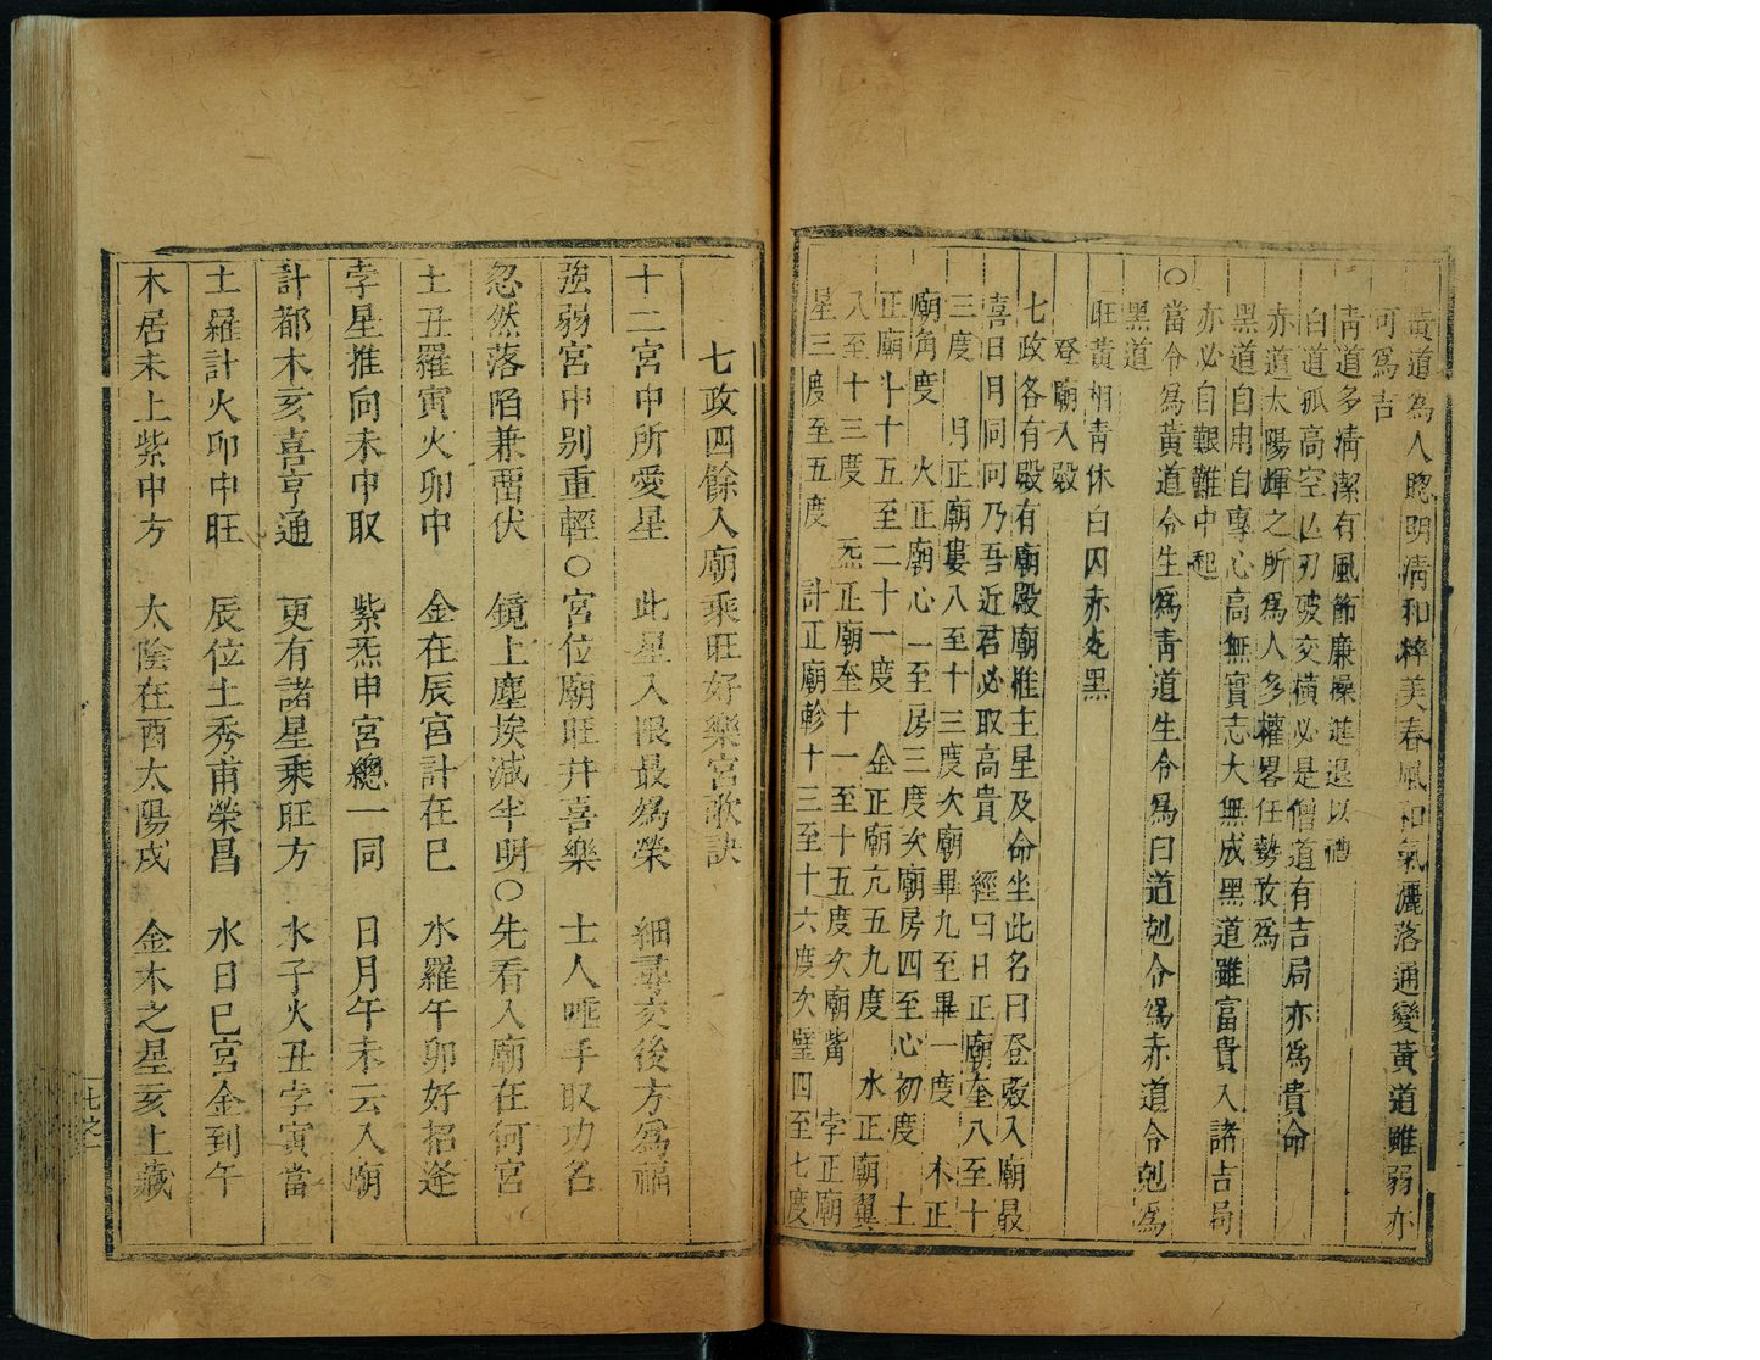 黃道為人聰明清和粹美春風和氣灑落通變黃道雖弱亦
可爲吉
靑道多淸潔有風節廉操進退以禮
白道孤高空亡刃破交橫必是僧道有吉局亦爲貴命
赤道太陽輝之所爲人多權畧任勢敢爲
黑道自用自專心高無實志大無成黑道雖富貴入諸吉局
亦必自艱難中起
○當令爲黃道令生爲靑道生令爲白道剋令爲赤道令剋爲
黑道
旺黃相靑休白囚赤死黑
登廟入殿
七政各有殿有廟殿廟惟主星及命坐此名曰登殿入廟最
喜日月同向乃吾近君必取高貴 經曰日正廟奎八至十
三度 月正廟婁八至十三度次廟畢九至畢一度 木正
廟角度 火正廟心一至房三度次廟房四至心初度 土
正廟斗十五至二十一度 金正廟亢五九度 水正廟翼
八至十三度 炁正廟奎十一至十五度次廟觜 孛正廟
星三度至五度 計正廟軫十三至十六度次壁四至七度
七政四餘入廟乘旺好樂宮歌訣
十二宮中所愛星 此星入限最爲榮 細尋交後方爲福
強弱宮中別重輕○宮位廟旺并喜樂 士人唾手取功名
忽然落陷兼留伏 鏡上塵埃減半明○先看入廟在何宮
土丑羅寅火卯中 金在辰宮計在巳 水羅午卯好招逢
孛星推向未中取 紫炁申宮總一同 日月午未云入廟
計都木亥喜亨通 更有諸星乘旺方 水子火丑孛寅當
土羅計火卯中旺 辰位土秀甫榮昌 水日巳宮金到午
木居未上紫申方 太陰在酉太陽戌 金木之星亥上藏